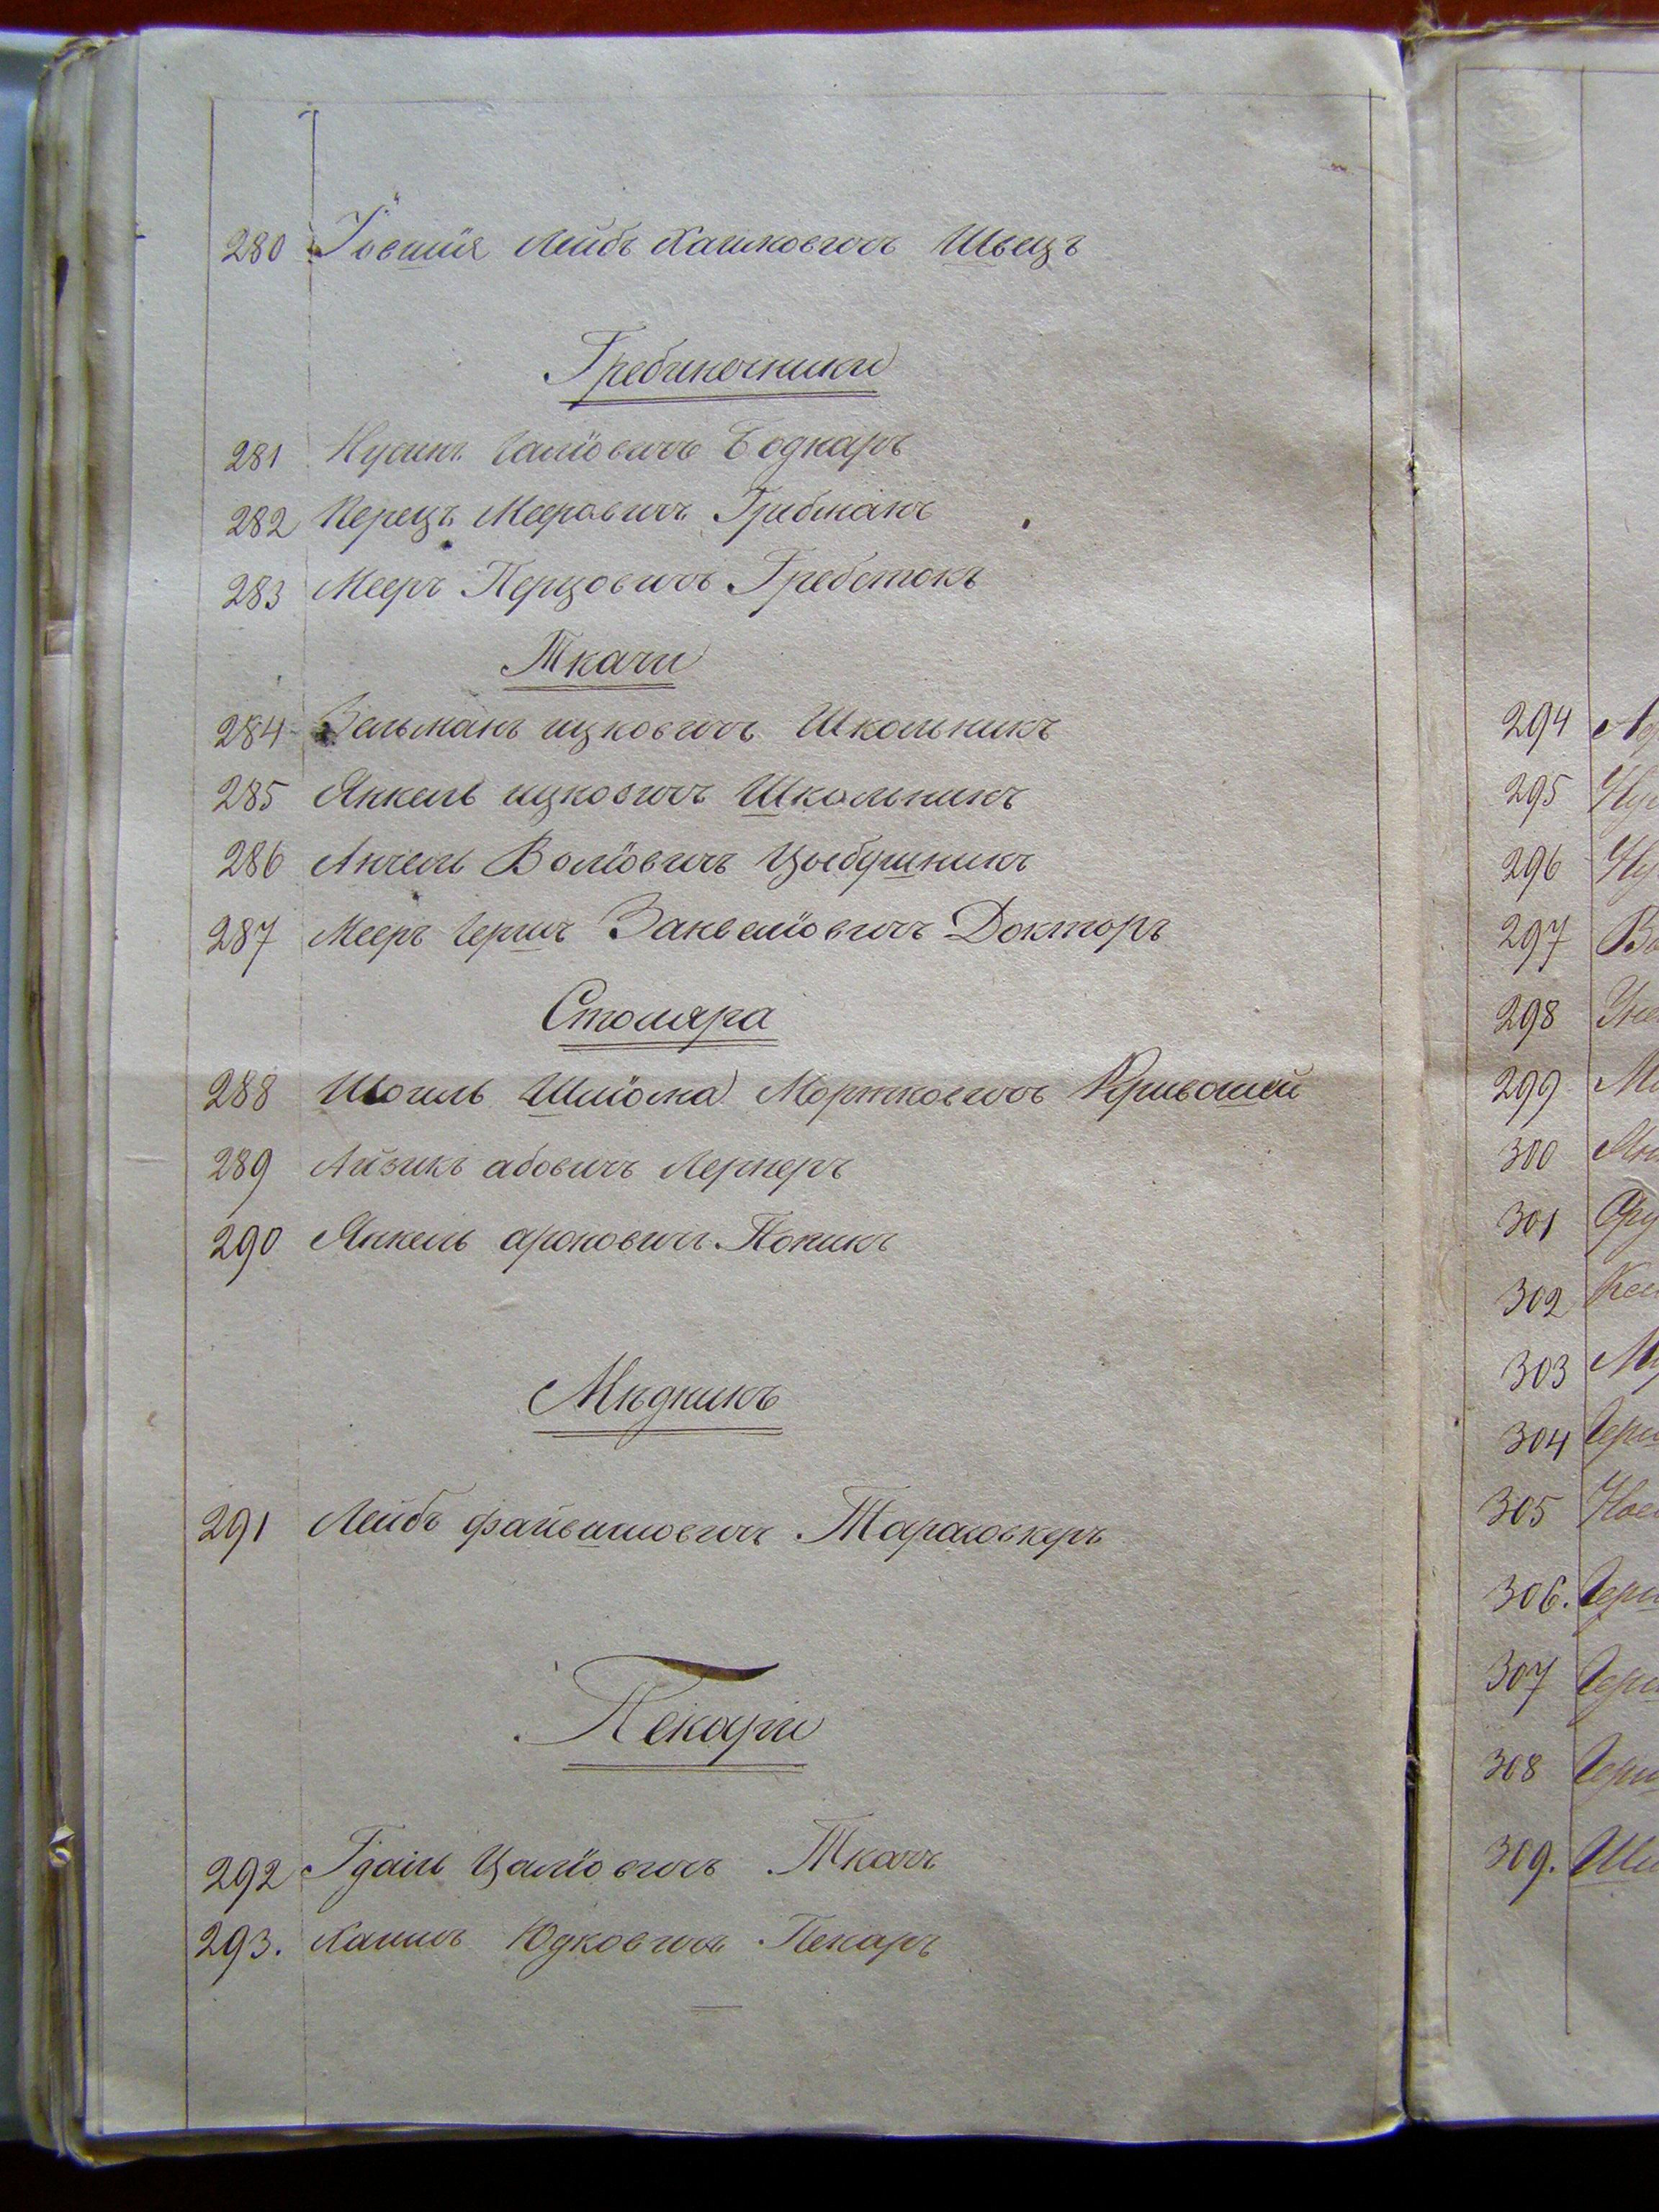 280 Іовшія Лейбъ Хаимковичъ Швецъ
Гребиночники
281 Нусинъ Чаліовичъ Боднаръ
282 Перецъ Мееровичъ Грибманъ
283 Мееръ Перцовичъ Гребетокъ
Ткачи
284 Зельманъ ицковичъ Школьникъ
285 Янкель ицковичъ Школьникъ
286 Анчель Воліовичъ Цыбушникъ
287 Мееръ Гершъ Занвеліовичъ Докторъ
Столяра
288 Шоиль Шліома Мортковичъ Кривошей
289 Айзикъ абовичъ Лернеръ
290 Янкель ароновичъ Поникъ
Мѣдникъ
291 Лейбъ файвишовичъ Тарасовкеръ
Пекари
292 Гдаль Цаліовичъ Ткачъ
293. Хаимъ Юдковичъ Пекаръ
294
295
296
297
298
299
300
301
302
303
304
305
306.
307
308
309.